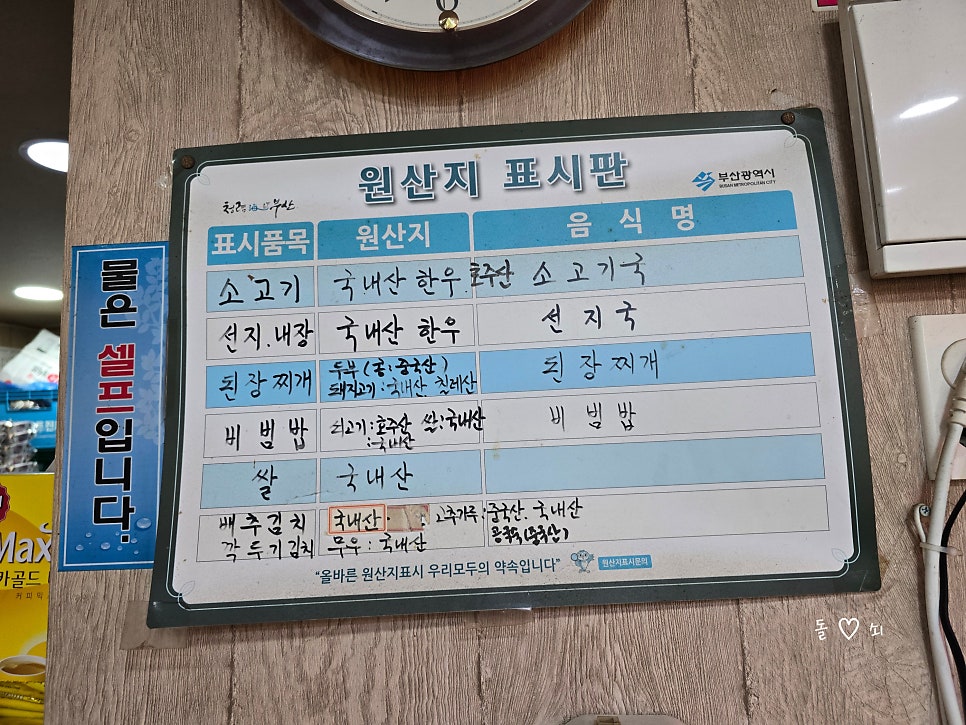 원산지 표시판
부산광역시
BUSAN METROPOLITAN CITY
표시품목 원산지 음식명
소고기 국내산 한우. 호주산 소고기국
선지.내장 국내산 한우 선지국
된장찌개 두부(콩:중국산) 된장찌개
돼지고기:국내산 칠레산
비빔밥 쇠고기:호주산 쌀:국내산 비빔밥
:국내산
쌀 국내산
배추김치 국내산. : 고추가루:중국산. 국내산
깍두기김치 무우:국내산
"올바른 원산지표시 우리모두의 약속입니다"
원산지표시문의
물은 셀프입니다.
Max
카골드
커피믹
돌♡쇠